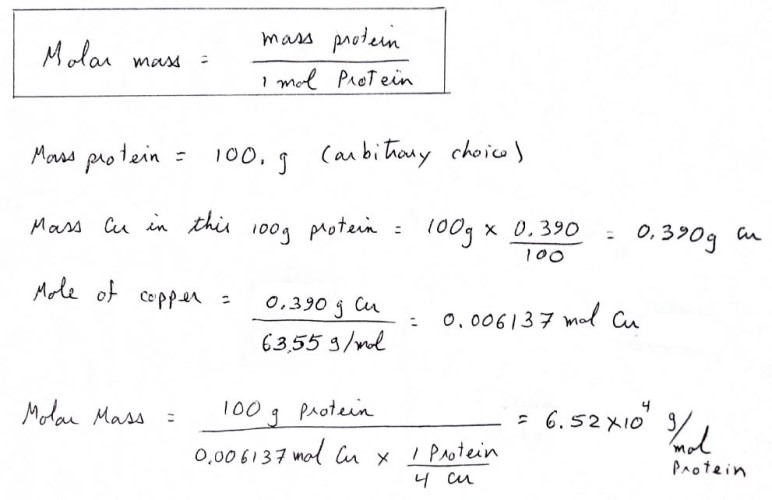 Molar mass = mass protein / 1 mol Protein
Mass protein = 100. g (arbitrary choice)
Mass Cu in this 100g protein = 100g × 0.390 / 100 = 0.390g Cu
Mole of copper = 0.390 g Cu / 63.55 g/mol = 0.006137 mol Cu
Molar Mass = 100 g Protein / 0.006137 mol Cu × 1 Protein / 4 Cu = 6.52 × 10⁴ g/mol Protein